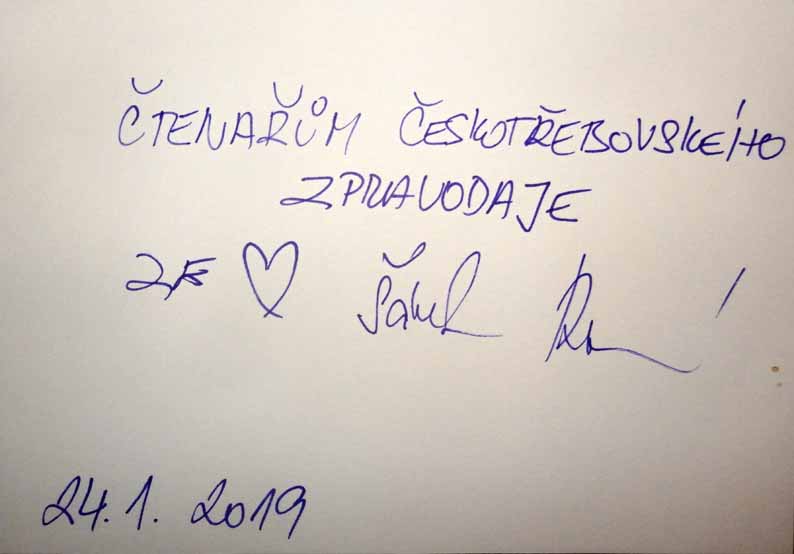 ČTENAŘŮM ČESKOTŘEBOVSKÉHO
ZPRAVODAJE
ZE ♡
24.1. 2019